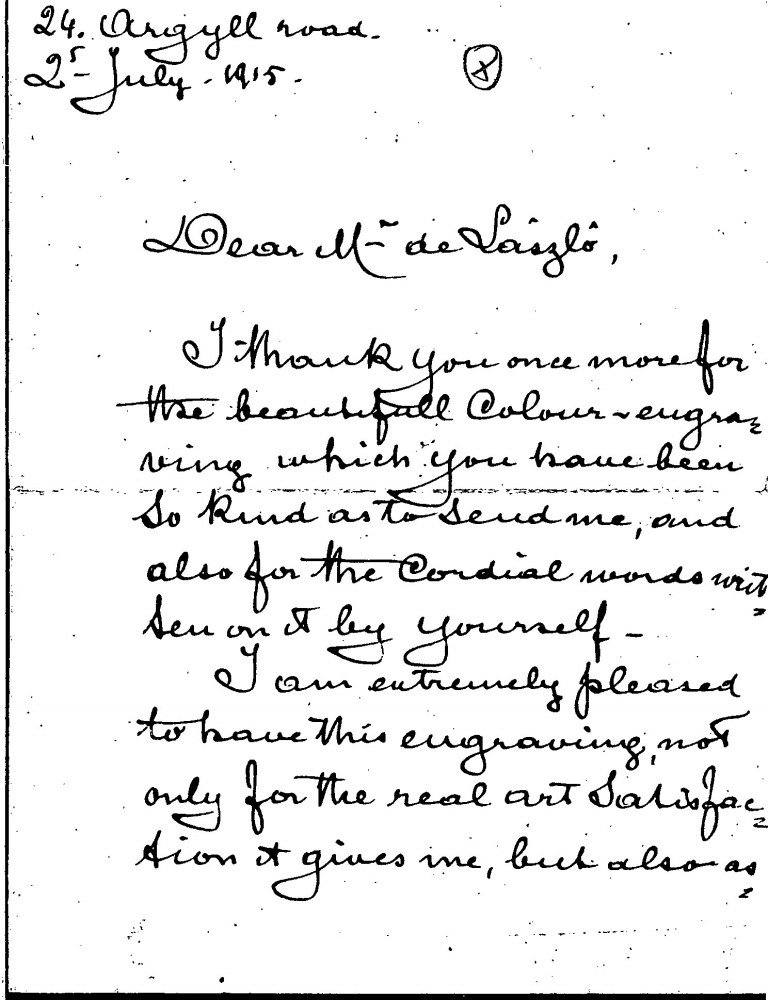 24. Argyll road.
25 July. 1915.
8
Dear Mr de László,
I thank you once more for
the beautifull Colour-engra=
ving which you have been
So kind as to Send me, and
also for the Cordial words writ=
ten on it by yourself -
I am extremely pleased
to have this engraving, not
only for the real art Satisfac=
tion it gives me, but also as=